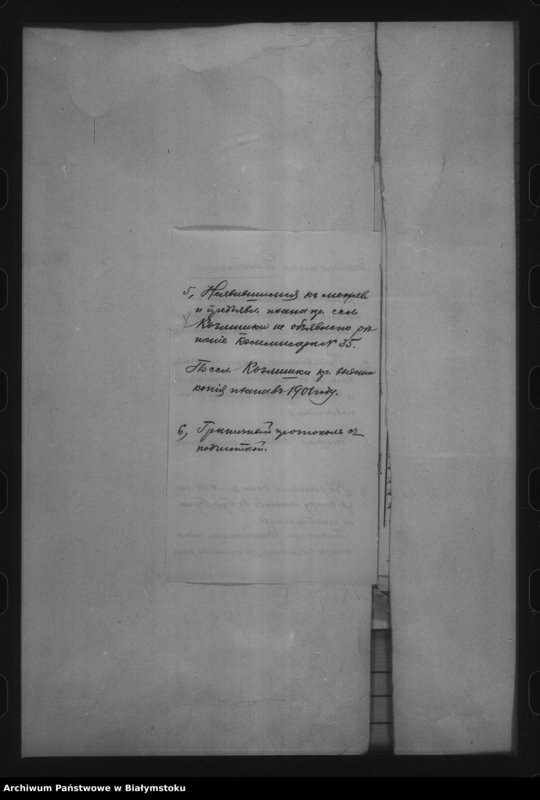 5, Неявившимся къ межев.
и предъявл. плана кр. сел.
Козлишки не объявлено рѣ-
шеніе Коммисара № 35.
По сел. Козлишки кр. выдана
копія плана въ 1901 году.
6, Граничный протоколъ съ
подчисткой.
Archiwum Państwowe w Białymstoku